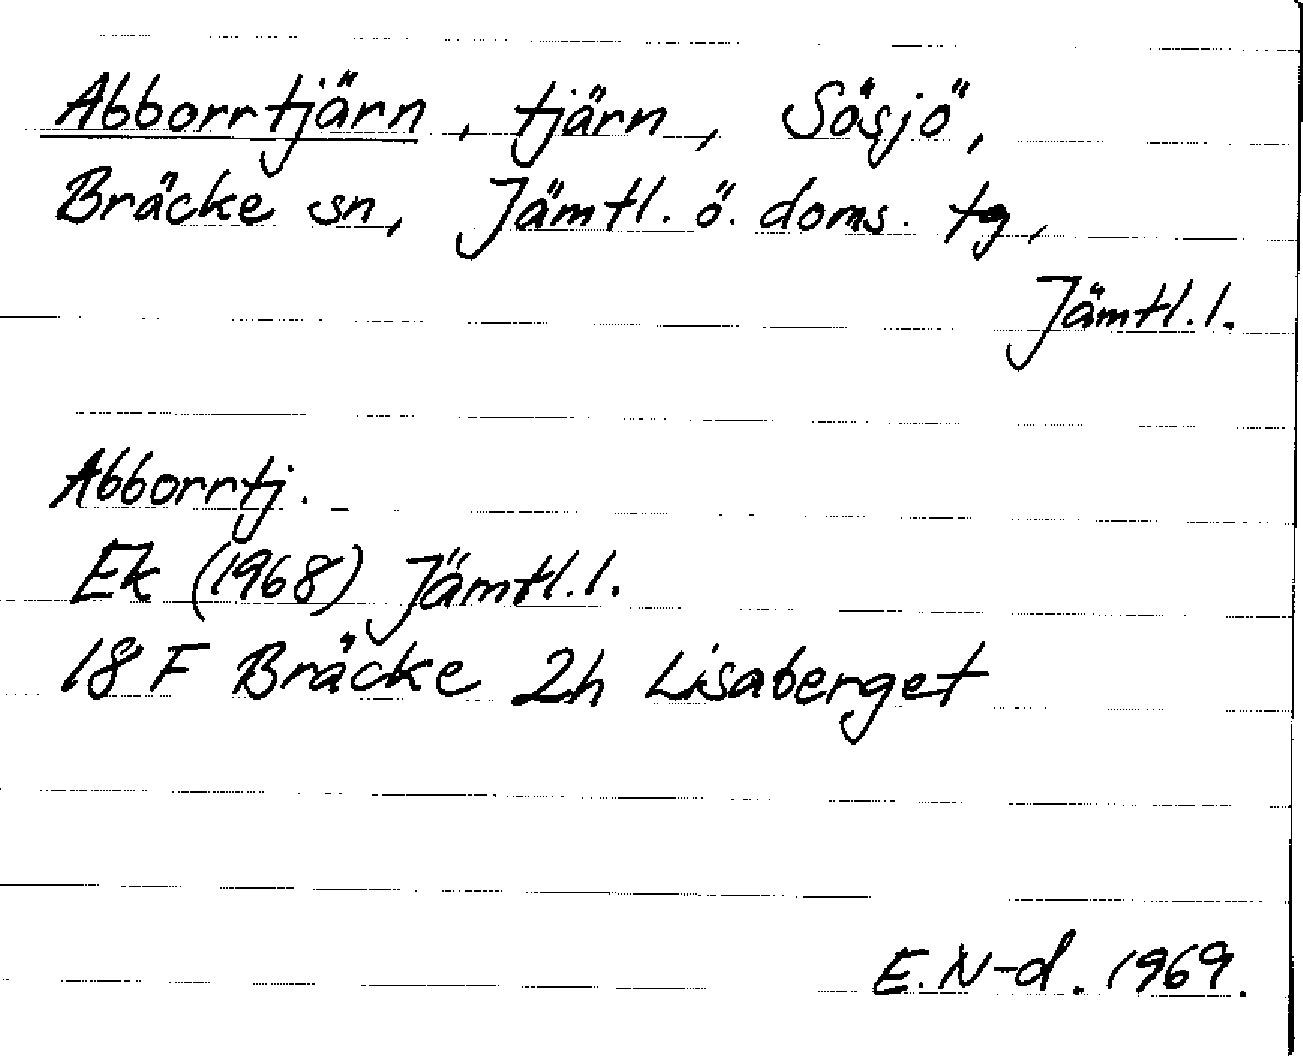 Abborrtjärn, tjärn, Sösjö,
Bräcke sn, Jämtl. ö. doms. tg,
Jämtl. l.
Abborrtj.
Ek (1968) Jämtl. l.
18 F Bräcke 2h Lisaberget
E. N-d. 1969.